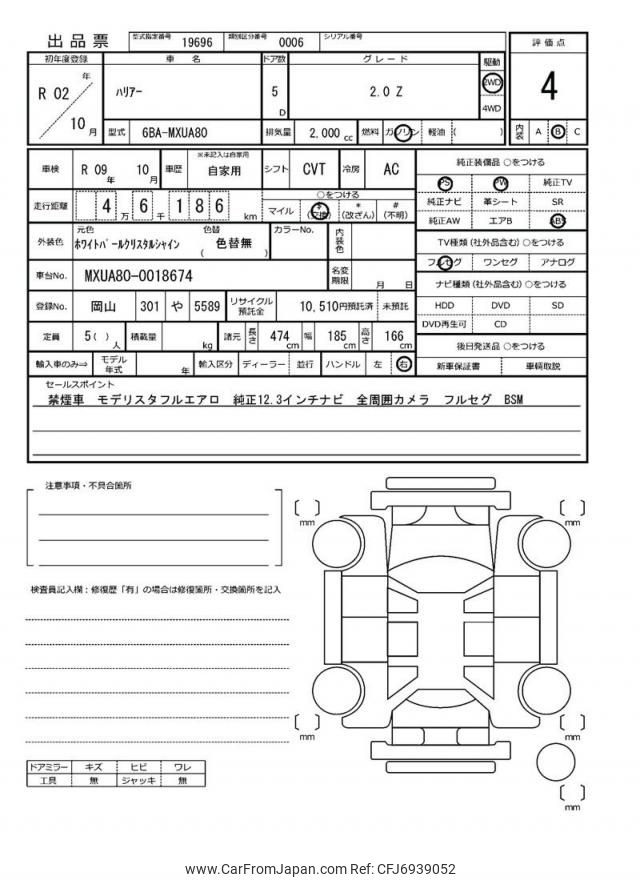 出品票
型式指定番号 19696 類別区分番号 0006 シリアル番号
初年度登録 車名 ドア数 グレード 駆動 評価点
R 02 年 10 月 ハリアー 5 D 2.0 Z 2WD 4WD 4
型式 6BA-MXUA80 排気量 2,000 cc 燃料 ガソリン 軽油 ( ) 内装 A B C
車検 R 09 年 10 月 車歴 ※未記入は自家用 自家用 シフト CVT 冷房 AC
走行距離 4 万 6 千 1 8 6 km ○をつける マイル $ (交換) * (改ざん) # (不明)
外装色 元色 ホワイトパールクリスタルシャイン 色替 ( 色替無 ) カラーNo. 内装色
車台No. MXUA80-0018674 名変期限 月 日
登録No. 岡山 301 や 5589 リサイクル預託金 10,510円預託済 未預託
定員 5 ( ) 人 積載量 kg 諸元 長さ 474 cm 幅 185 cm 高さ 166 cm
輸入車のみ⇒ モデル年式 年 輸入区分 ディーラー 並行 ハンドル 左 右
純正装備品 ○をつける
PS PW 純正TV
純正ナビ 革シート SR
純正AW エアB ABS
TV種類 (社外品含む) ○をつける
フルセグ ワンセグ アナログ
ナビ種類 (社外品含む) ○をつける
HDD DVD SD
DVD再生可 CD
後日発送品 ○をつける
新車保証書 車輌取説
セールスポイント
禁煙車 モデリスタフルエアロ 純正12.3インチナビ 全周囲カメラ フルセグ BSM
注意事項・不具合箇所
検査員記入欄：修復歴「有」の場合は修復箇所・交換箇所を記入
[ ] mm [ ] mm
[ ] mm [ ] mm
[ ] mm
ドアミラー キズ ヒビ ワレ
工具 無 ジャッキ 無
www.CarFromJapan.com Ref: CFJ6939052